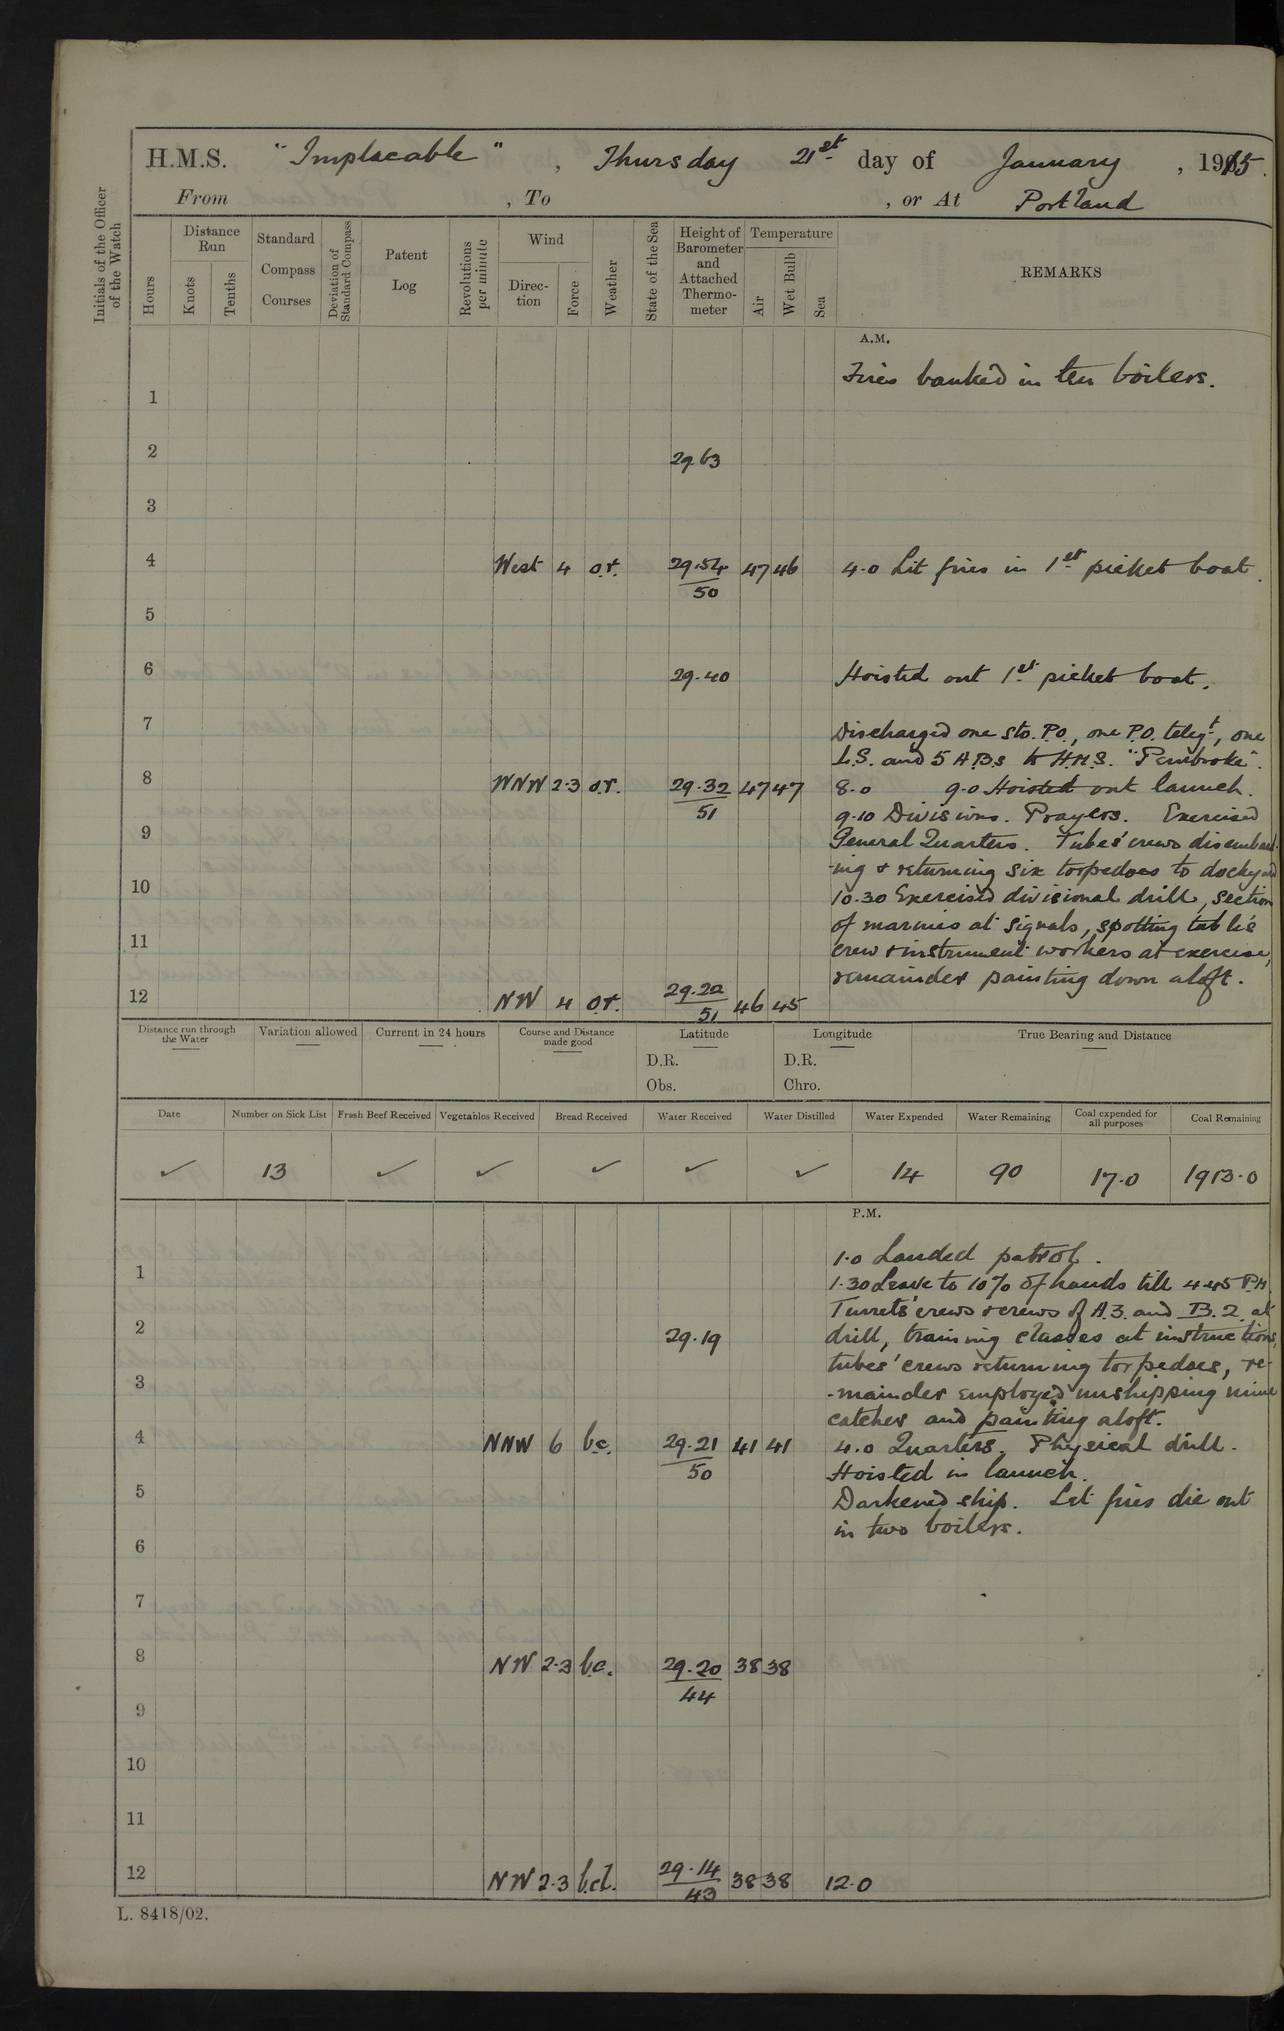 H.M.S. "Implacable", Thursday 21st day of January, 1915.
From , To , or At Portland
Initials of the Officer of the Watch
Hours
Distance Run
Knots
Tenths
Standard Compass Courses
Deviation of Standard Compass
Patent Log
Revolutions per minute
Wind
Direction
Force
Weather
State of the Sea
Height of Barometer and Attached Thermometer
Temperature
Air
Wet Bulb
Sea
REMARKS
A.M.
Fires banked in ten boilers.
1
2 29.63
3
4 West 4 o.r. 29.54/50 47 46 4.0 Lit fires in 1st picket boat.
5
6 29.40 Hoisted out 1st picket boat.
7 Discharged one Sto. P.O., one P.O. telegt, one
L.S. and 5 A.B.s to H.M.S. "Pembroke".
8 WNW 2.3 o.r. 29.32/51 47 47 8.0 9.0 Hoisted out launch.
9.10 Divisions. Prayers. Exercised
9 General Quarters. Tubes' crews disembark-
-ing & returning six torpedoes to dockyard
10 10.30 Exercised divisional drill, section
of marines at signals, spotting table's
11 crew & instrument workers at exercise,
remainder painting down aloft.
12 NW 4 o.r. 29.22/51 46 45
Distance run through the Water
Variation allowed
Current in 24 hours
Course and Distance made good
Latitude
Longitude
True Bearing and Distance
D.R. D.R.
Obs. Chro.
Date Number on Sick List Fresh Beef Received Vegetables Received Bread Received Water Received Water Distilled Water Expended Water Remaining Coal expended for all purposes Coal Remaining
✓ 13 ✓ ✓ ✓ ✓ ✓ 14 90 17.0 1913.0
P.M.
1.0 Landed patrol.
1 1.30 Leave to 10% of hands till 4.45 P.M.
Turrets' crews & crews of A.3. and B.2. at
2 29.19 drill, training classes at instructions,
tubes' crews returning torpedoes, re-
3 -mainder employed unshipping mine
catcher and painting aloft.
4 NNW 6 b.c. 29.21/50 41 41 4.0 Quarters. Physical drill.
Hoisted in launch.
5 Darkened ship. Let fires die out
in two boilers.
6
7
8 NW 2.3 b.c. 29.20/44 38 38
9
10
11
12 NW 2.3 b.c.l. 29.14/43 38 38 12.0
L. 8418/02.